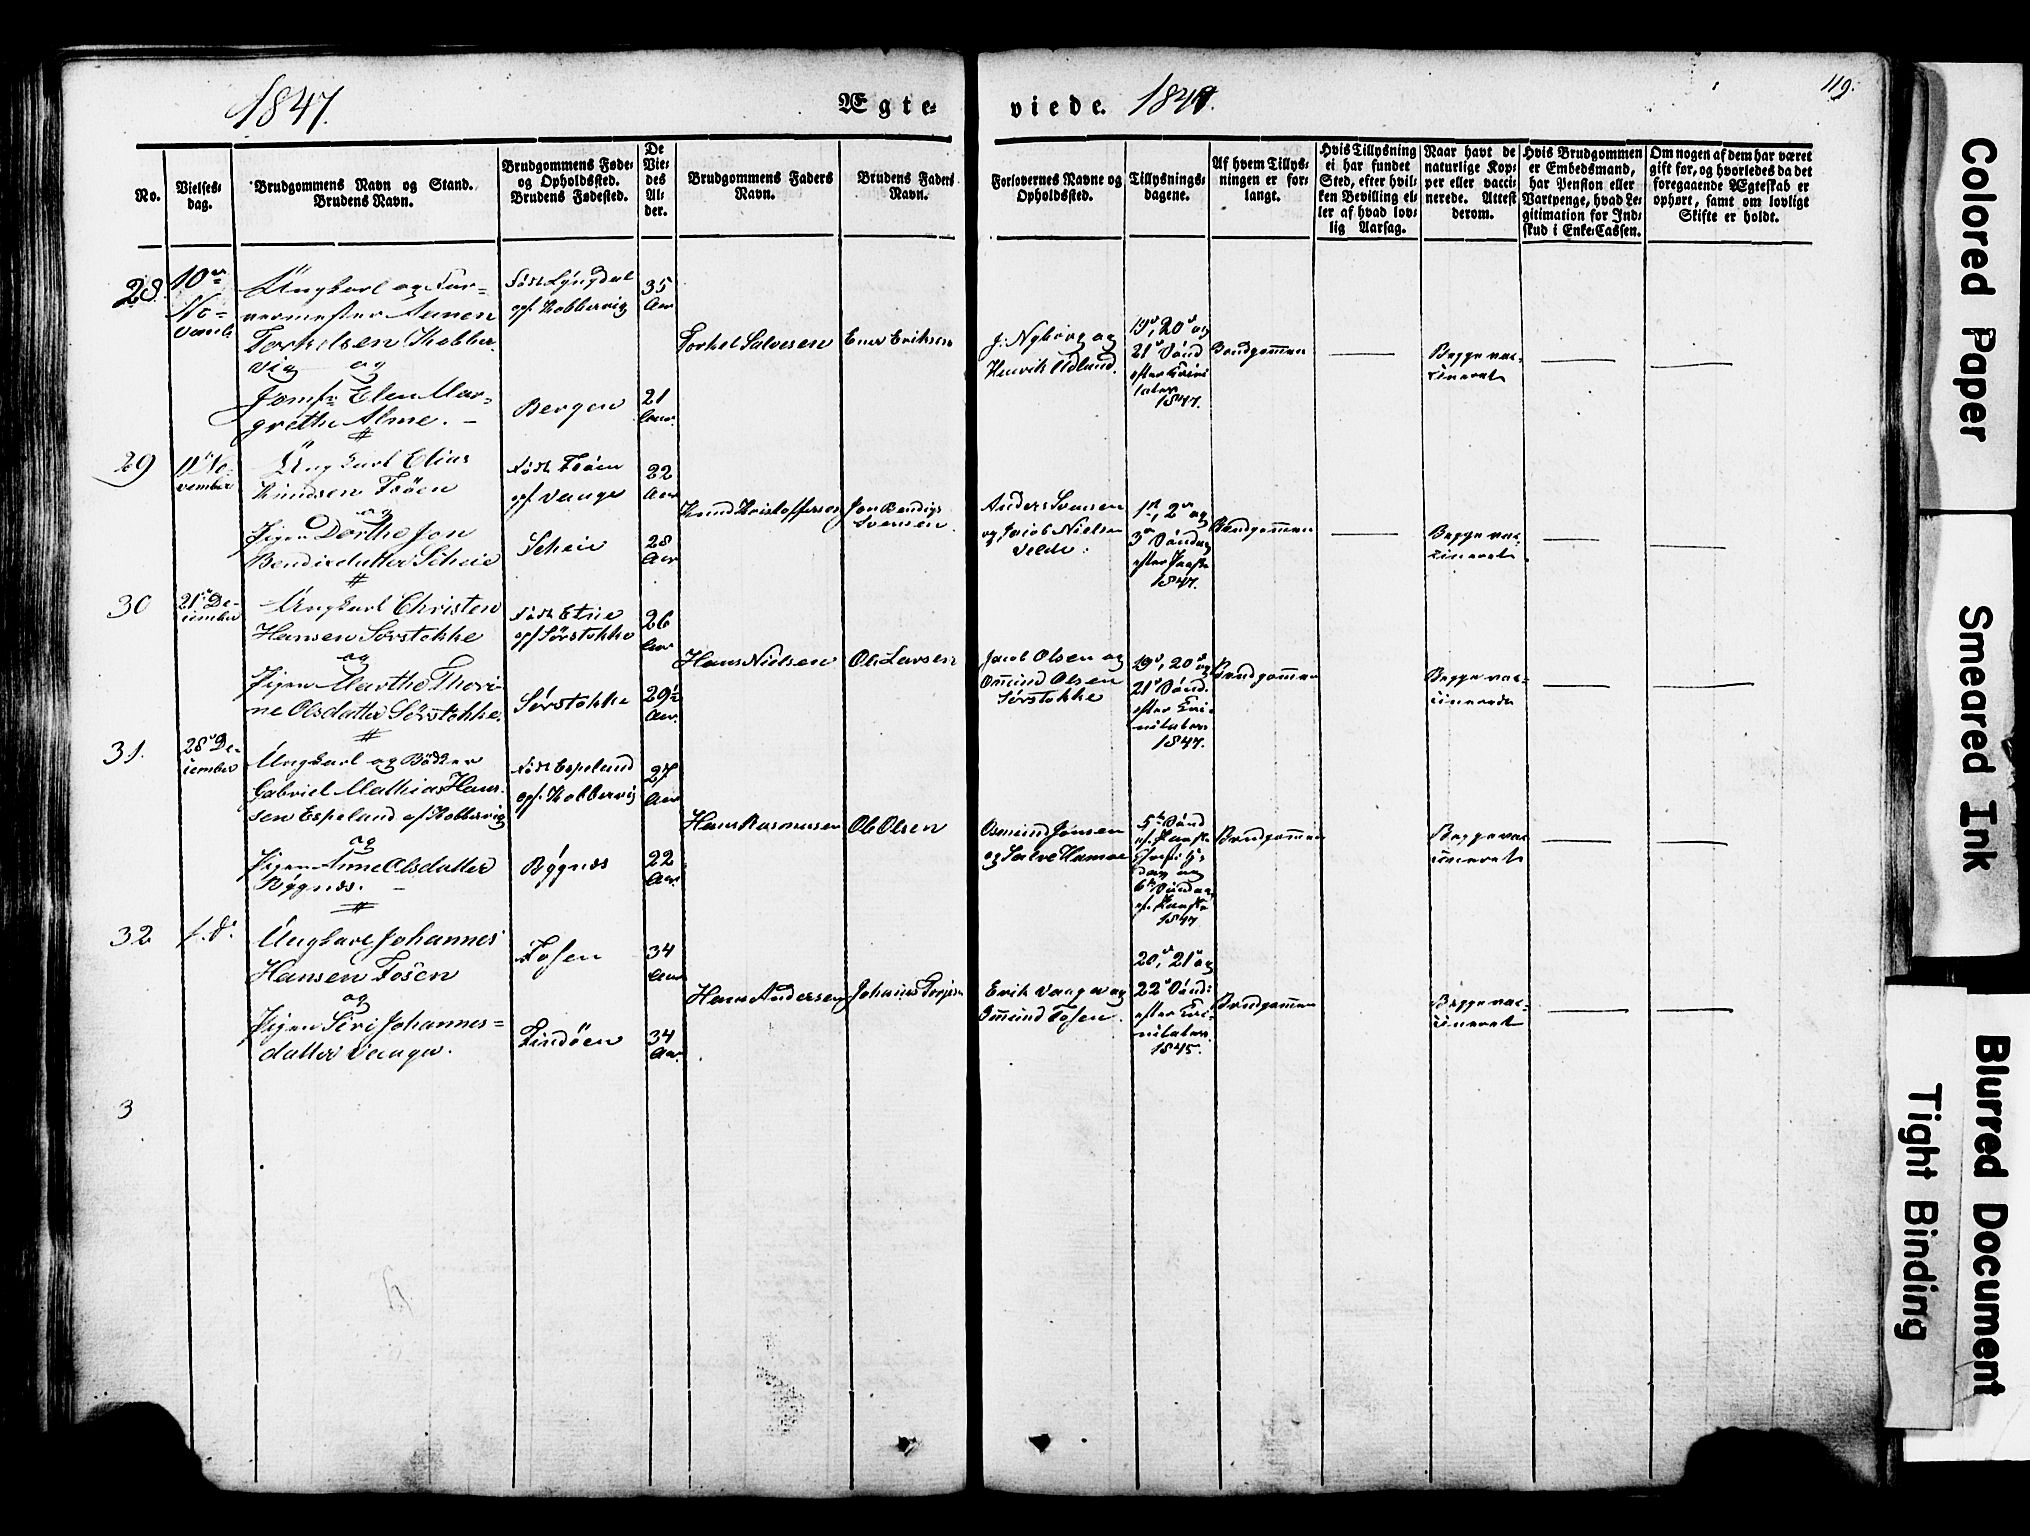 1847.
Ægte-
viede. 1847.
119.
No.
Vielses-
dag.
Brudgommens Navn og Stand.
Brudens Navn.
Brudgommens Føde-
og Opholdssted.
Brudens Fødested.
De
Vie-
des
Al-
der.
Brudgommens Faders
Navn.
Brudens Faders
Navn.
Forlovernes Navne og
Opholdssted.
Tillysnings-
dagene.
Af hvem Tillys-
ningen er for-
langt.
Hvis Tillysning
ei har fundet
Sted, efter hvil-
ken Bevilling el-
ler af hvad lov-
lig Aarsag.
Naar havt de
naturlige Kop-
per eller vacci-
nerede. Attest
derom.
Hvis Brudgommen
er Embedsmand,
har Pension eller
Vartpenge, hvad Le-
gitimation for Ind-
skud i Enke-Cassen.
Om nogen af dem har været
gift før, og hvorledes da det
foregaaende Ægteskab er
ophørt, samt om lovligt
Skifte er holdt.
28.
10de
No-
vemb
Ungkarl og Gar-
vermester Aanen
Torkelsen Kobber-
vig og
Jomfr Elen Mar-
grethe Alme. -
Født Lyngdal
opf. Kobbervig
Bergen
35
Aar
21
Aar.
Torkel Salvesen
Ener Eriksen
J. Nyborg og
Henrik Udland.
19de, 20de og
21de Sønd
efter Trini
tatis
1847.
Brudgommen
Begge vac-
cineret
29
11te No-
vember
Ungkarl Elias
Knudsen Fosen
og
Pigen Dorthe Jon
Bendixdatter Scheie
Født Fosen
opf. Vaage
Scheie
22
Aar
28
Aar
Knud Kristoffersen
Jon Bendigs
Svensen.
Anders Svensen
og Jacob Nielsen
Velde.
1ste, 2de og
3de Søndag
efter Paaske
1847.
Brudgommen
Begge vac-
cineret
30
21de De-
cember
Ungkarl Christen
Hansen Sørstokke
og
Pigen Marthe Thori-
ne Olsdatter Sørstokke.
Født Etne
opf. Sørstokke
Sørstokke
26
Aar
29½
Aar.
Hans Nielsen
Ole Larsen
Jacob Olsen og
Omund Olsen
Sørstokke
19de, 20de og
21de Sønd.
efter Tri-
nitatis
1847.
Brudgommen
Begge vac-
cinerede
31.
28de De-
cember
Ungkarl og Bødker
Gabriel Mathias Han-
sen Espeland af Kobbervig
og
Pigen Anne Olsdatter
Bygnes. -
Født Espeland
opf. Kobbervig
Bygnes
27
Aar
22
Aar.
Hans Rasmussen
Ole Olsen
Osmund Jonsen
og Salve Hamoe
5te Sønd
ef. Paaske
6te Søndag
ef. Paaske
1847
Brudgommen
Begge vac-
cineret
32
s. D.
Ungkarl Johannes
Hansen Fosen
og
Pigen Siri Johannes-
datter Vaage.
Fosen
Lindøen
34
Aar
34
Aar.
Hans Andersen
Johannes Torjesen
Erik Vaage og
Omund Fosen.
20de, 21de og
22de Sønd.
efter Tri-
nitatis
1845.
Brudgommen
Begge vac-
cineret
3
Colored Paper
Smeared Ink
Blurred Document
Tight Binding